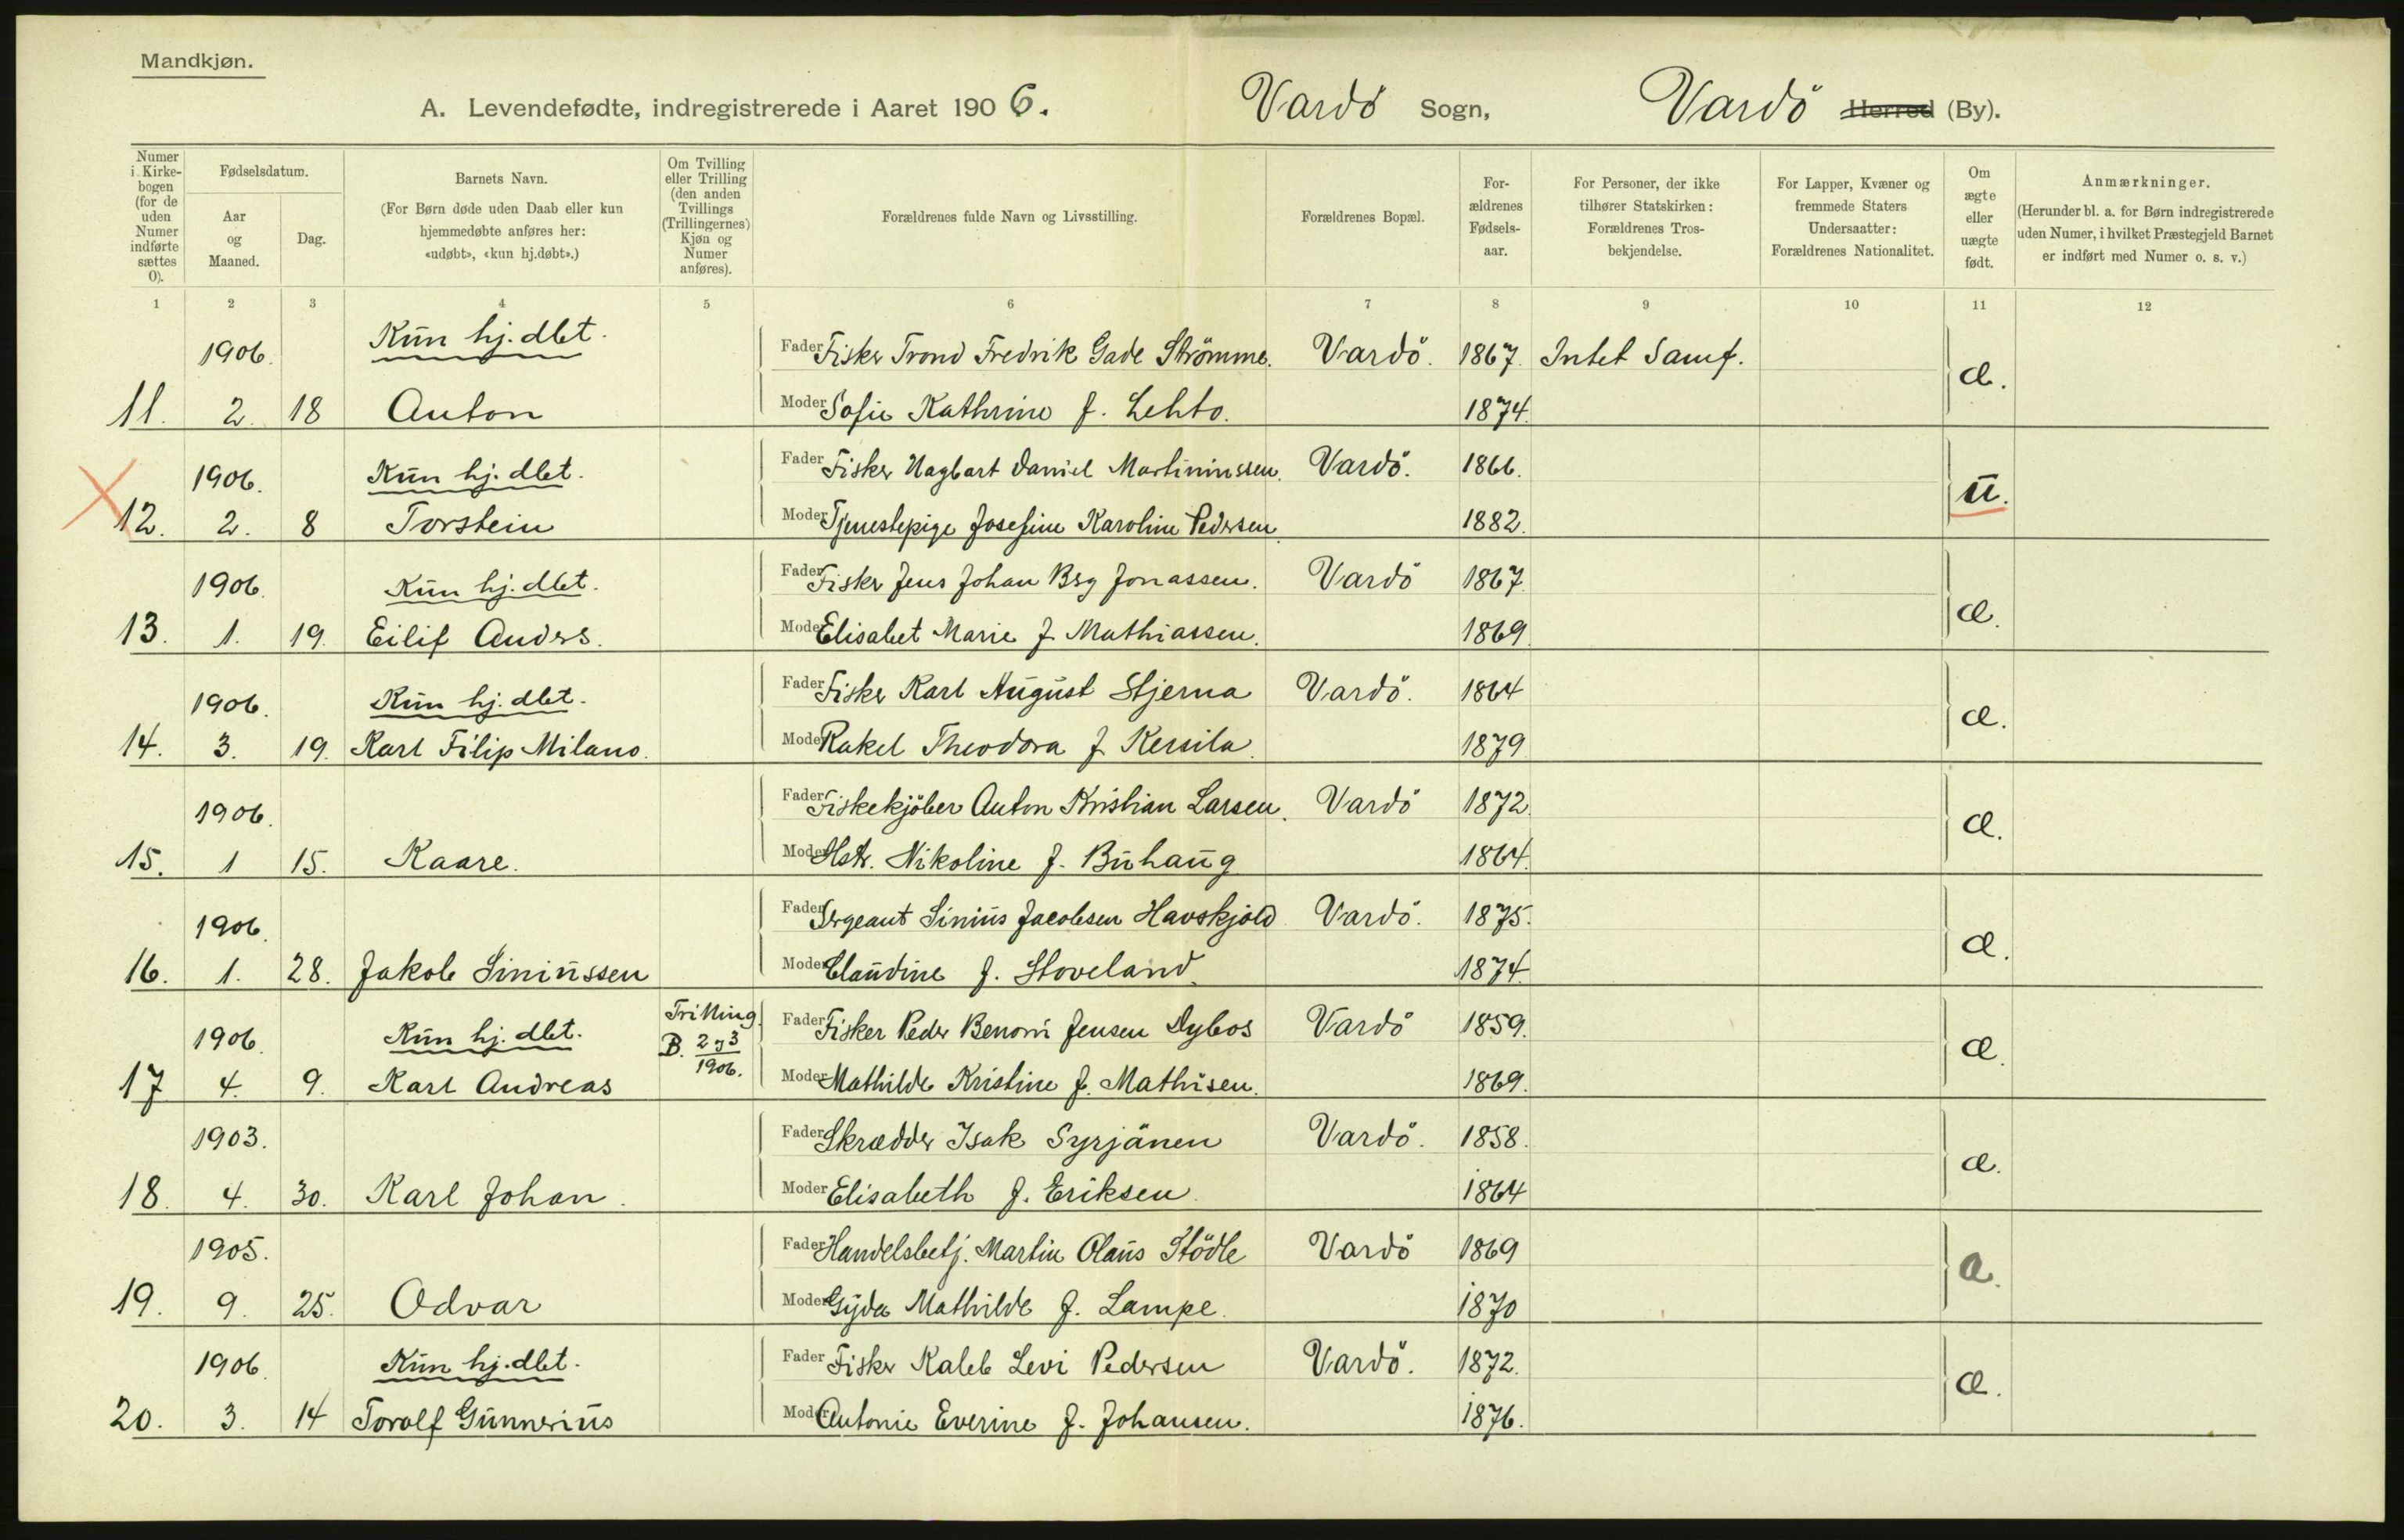 Mandkjøn.
A. Levendefødte, indregistrerede i Aaret 1906. Vardö Sogn, Vardö Herred (By).
Numer i Kirkebogen (for de uden Numer indførte sættes 0).
Fødselsdatum.
Aar og Maaned.
Dag.
Barnets Navn.
(For Børn døde uden Daab eller kun hjemmedøbte anføres her: «udøbt», «kun hj.døbt».)
Om Tvilling eller Trilling (den anden Tvillings (Trillingernes) Kjøn og Numer anføres).
Forældrenes fulde Navn og Livsstilling.
Forældrenes Bopæl.
Forældrenes Fødselsaar.
For Personer, der ikke tilhører Statskirken: Forældrenes Trosbekjendelse.
For Lapper, Kvæner og fremmede Staters Undersaatter: Forældrenes Nationalitet.
Om ægte eller uægte født.
Anmærkninger.
(Herunder bl. a. for Børn indregistrerede uden Numer, i hvilket Præstegjeld Barnet er indført med Numer o. s. v.)
1 2 3 4 5 6 7 8 9 10 11 12
1906. Kun hj. dbt. Fader Fisker Trond Fredrik Gade Strömme. Vardö. 1867. Intet Samf. æ.
11. 2. 18 Anton Moder Sofie Kathrine f. Lehto. 1874.
1906. Kun hj. dbt. Fader Fisker Hagbart Daniel Martiniussen. Vardö. 1866. u.
12. 2. 8 Torstein Moder Tjenestepige Josefine Karoline Pedersen. 1882.
1906. Kun hj. dbt. Fader Fisker Jens Johan Berg Jonassen. Vardö 1867 æ.
13. 1. 19. Eilif Anders. Moder Elisabet Marie f. Mathiassen. 1869.
1906. Kun hj. dbt. Fader Fisker Karl August Stjerna Vardö. 1864 æ.
14. 3. 19. Karl Filip Milano. Moder Rakel Theodora f. Kersila. 1879
1906. Fader Fiskekjöber Anton Kristian Larsen. Vardö 1872. æ.
15. 1 15. Kaare. Moder Hstr. Nikoline f. Buhaug 1864.
1906. Fader Sergeant Sinius Jacobsen Havskjold Vardö. 1875. æ.
16. 1. 28. Jakob Siniussen Moder Claudine f. Stoveland. 1874.
1906. Kun hj. dbt. Trilling. B. 2 og 3 1906. Fader Fisker Peder Benoni Jensen Dybos Vardö 1859. æ.
17 4. 9. Karl Andreas Moder Mathilde Kristine f. Mathisen. 1869.
1903. Fader Skrædder Isak Syrjänen Vardö. 1858. æ.
18. 4. 30. Karl Johan. Moder Elisabeth f. Eriksen. 1864
1905. Fader Handelsbetj. Martin Olaus Stödle Vardö 1869 æ.
19. 9. 25. Odvar Moder Gyda Mathilde f. Lampe. 1870
1906. Kun hj. dbt. Fader Fisker Kaleb Levi Pedersen Vardö. 1872. æ.
20. 3. 14 Torolf Gunnerius Moder Antonie Everine f. Johansen. 1876.